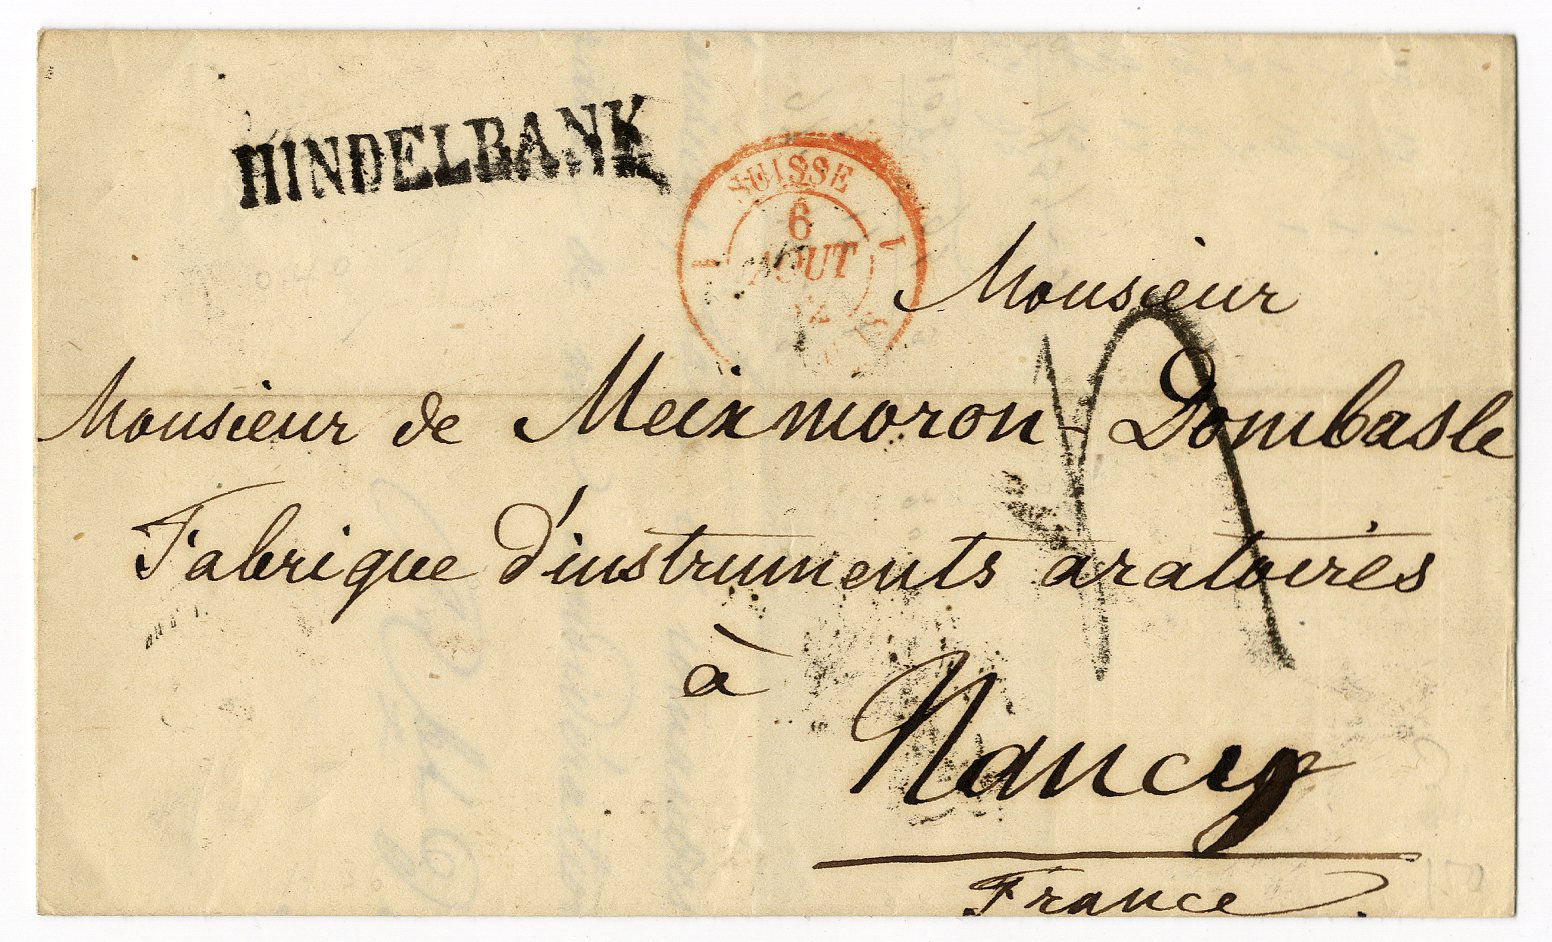 HINDELBANK
SUISSE
6
AOUT
Monsieur
Monsieur de Meixmoron-Dombasle
Fabrique d'instruments aratoires
à
Nancy
France.